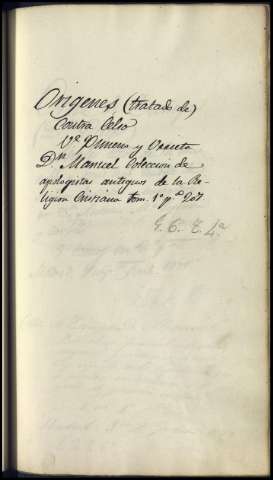 Origenes (tratado de)
Contra Celso
Vª Ximena y Urrieta
Dn. Manuel Coleccion de
apologistas antiguos de la Re-
ligion Cristiana tom. 1º pª 207
G. C. E. 4ª